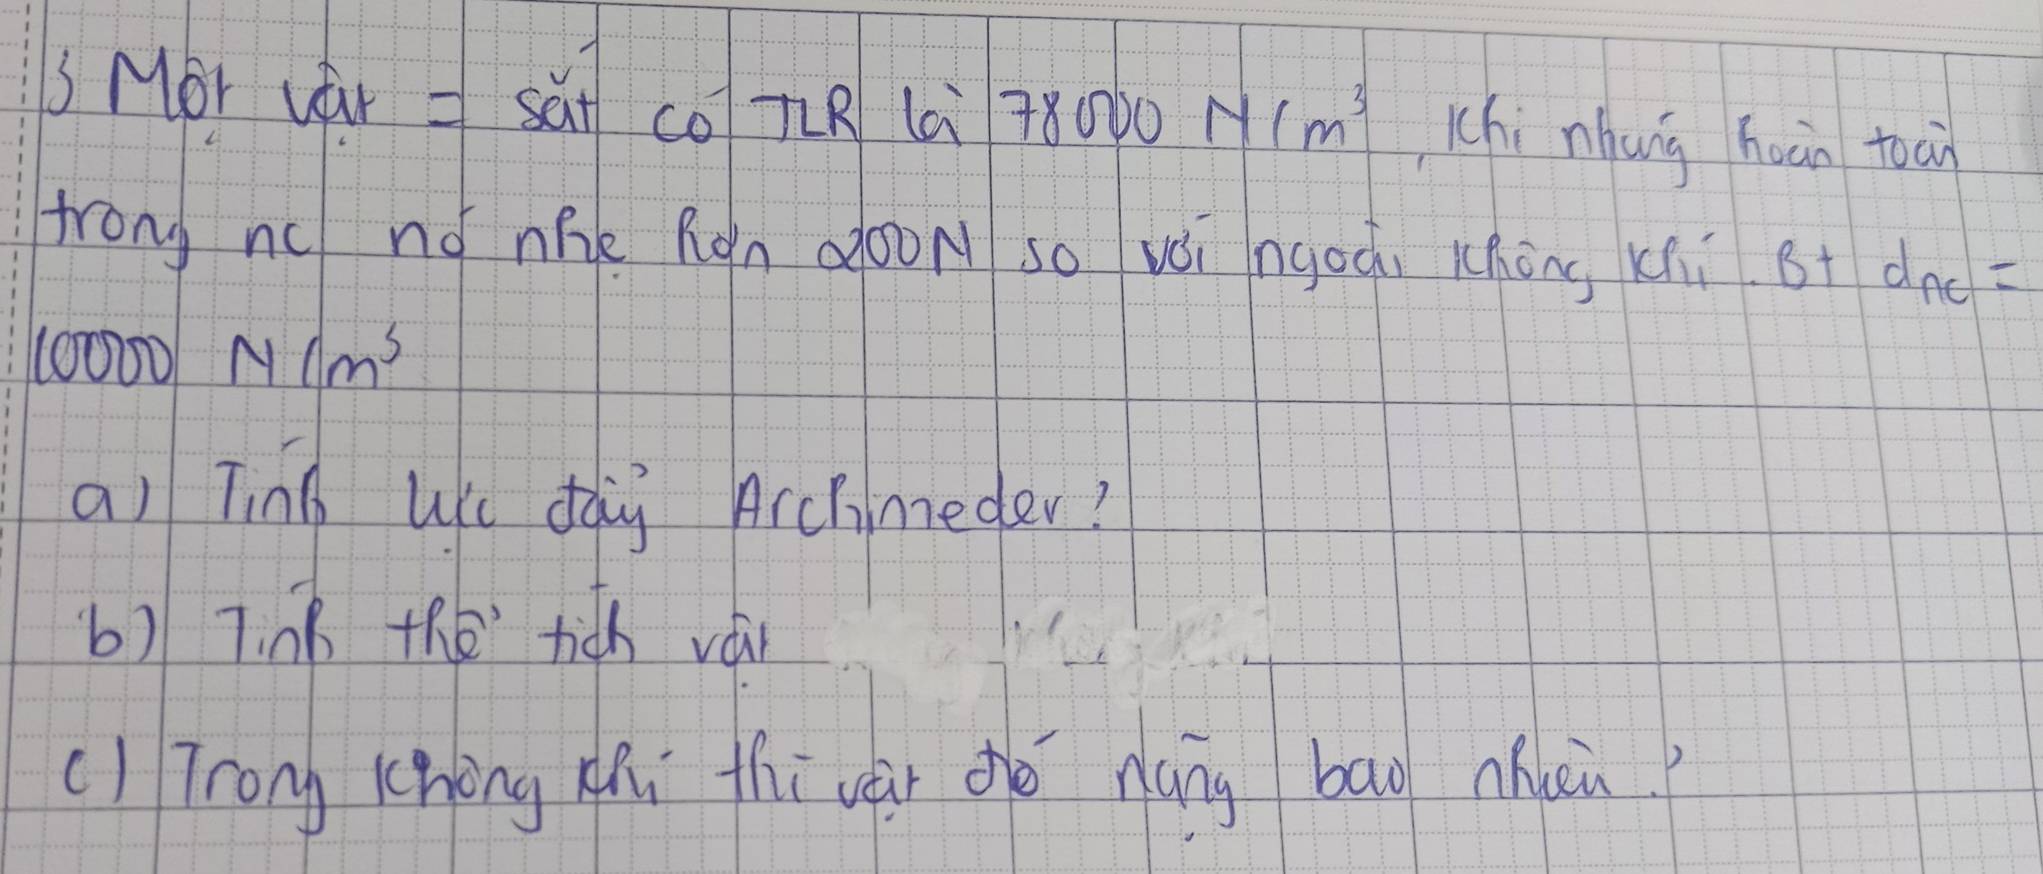 3 Một vật = sắt có TLR là 78000 N/m³, Khi nhúng hoàn toàn
trong nc nó nhẹ hơn 200N so với ngoài không khí. Bt dnc =
10000 N/m³
a) Tính lực đẩy Archimeder?
b) Tính thể tích vật
c) Trong không khí thì vật đó nặng bao nhiêu?